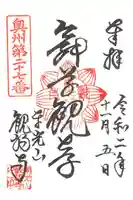 奉拝
令和二年
十一月五日
奥州第二十七番
舞草観音
光山
観福寺